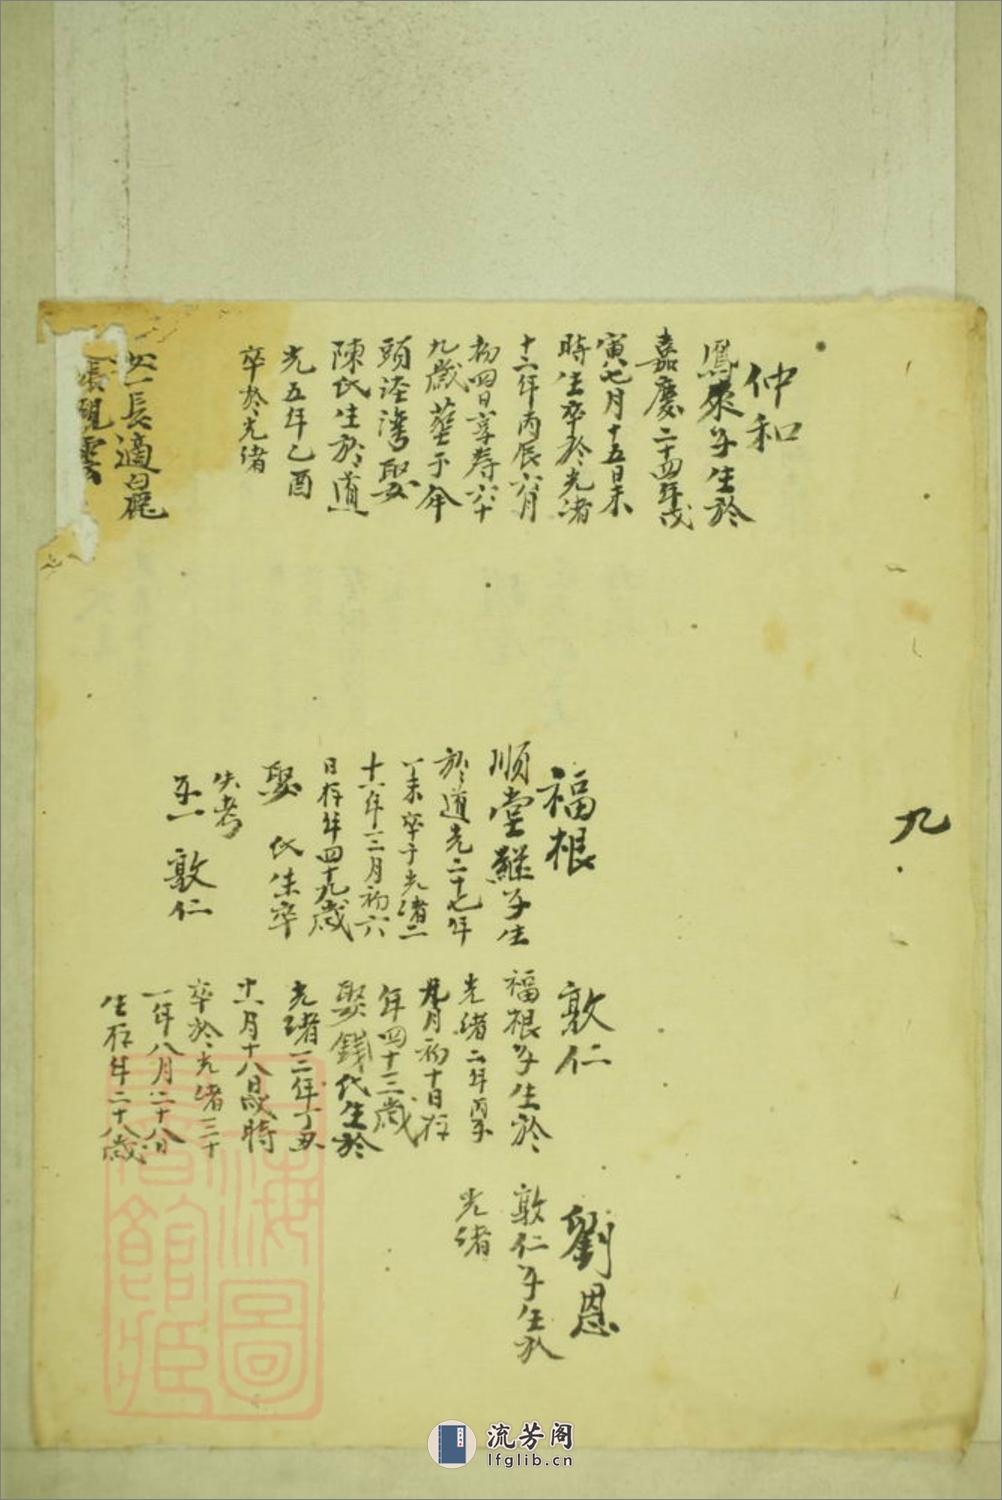 九
仲和
鳳来子生於
嘉慶二十四年戊
寅七月十五日未
時生卒於光緒
十二年丙辰六月
初四日享寿六十
九歲葬于
頭涇灣娶
陳氏生於道
光五年乙酉
卒於光緒
女一長適
張硯雲
福根
順堂継子生
於道光二十七年
丁未卒于光緒二
十六年二月初六
日存年四十九歲
娶 氏生卒
失考
子一 敦仁
敦仁
福根子生於
光緒二年丙子
九月初十日存
年四十三歲
娶錢氏生於
光緒三年丁丑
十一月十八日戌時
卒於光緒三十
一年八月二十八日
生存年二十八歲
劉恩
敦仁子生於
光緒
海圖
書館
流芳阁
lfglib.cn